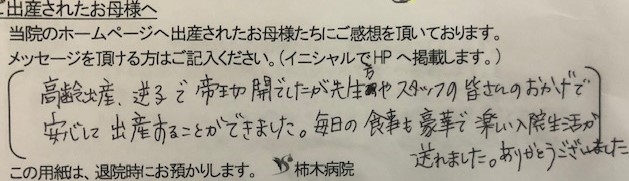 ご出産されたお母様へ
当院のホームページへ出産されたお母様たちにご感想を頂いております。
メッセージを頂ける方はご記入ください。(イニシャルでHPへ掲載します。)
高齢出産、逆子で帝王切開でしたが先生方やスタッフの皆さんのおかげで
安心して出産することができました。毎日の食事も豪華で楽しい入院生活が
送れました。ありがとうございました
この用紙は、退院時にお預かりします。 柿木病院